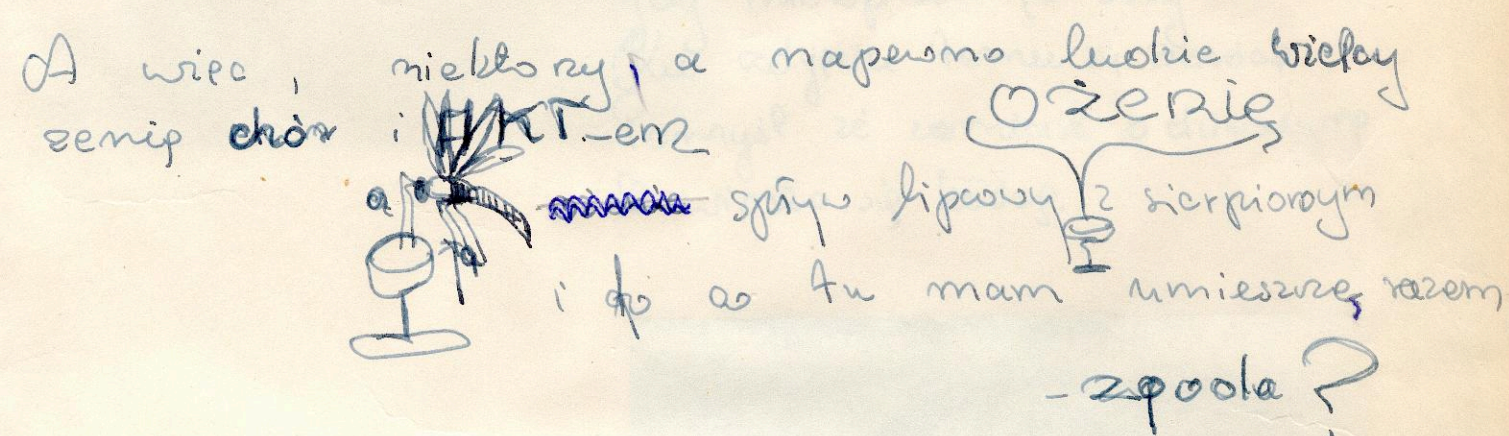 A więc, niektorzy, a napewno ludzie wielcy
żenię chór i AKT.-em
OŻENIĘ
a
spływ lipcowy z sierpiowym
a
i to co tu mam umieszczę, razem
- zgoda?